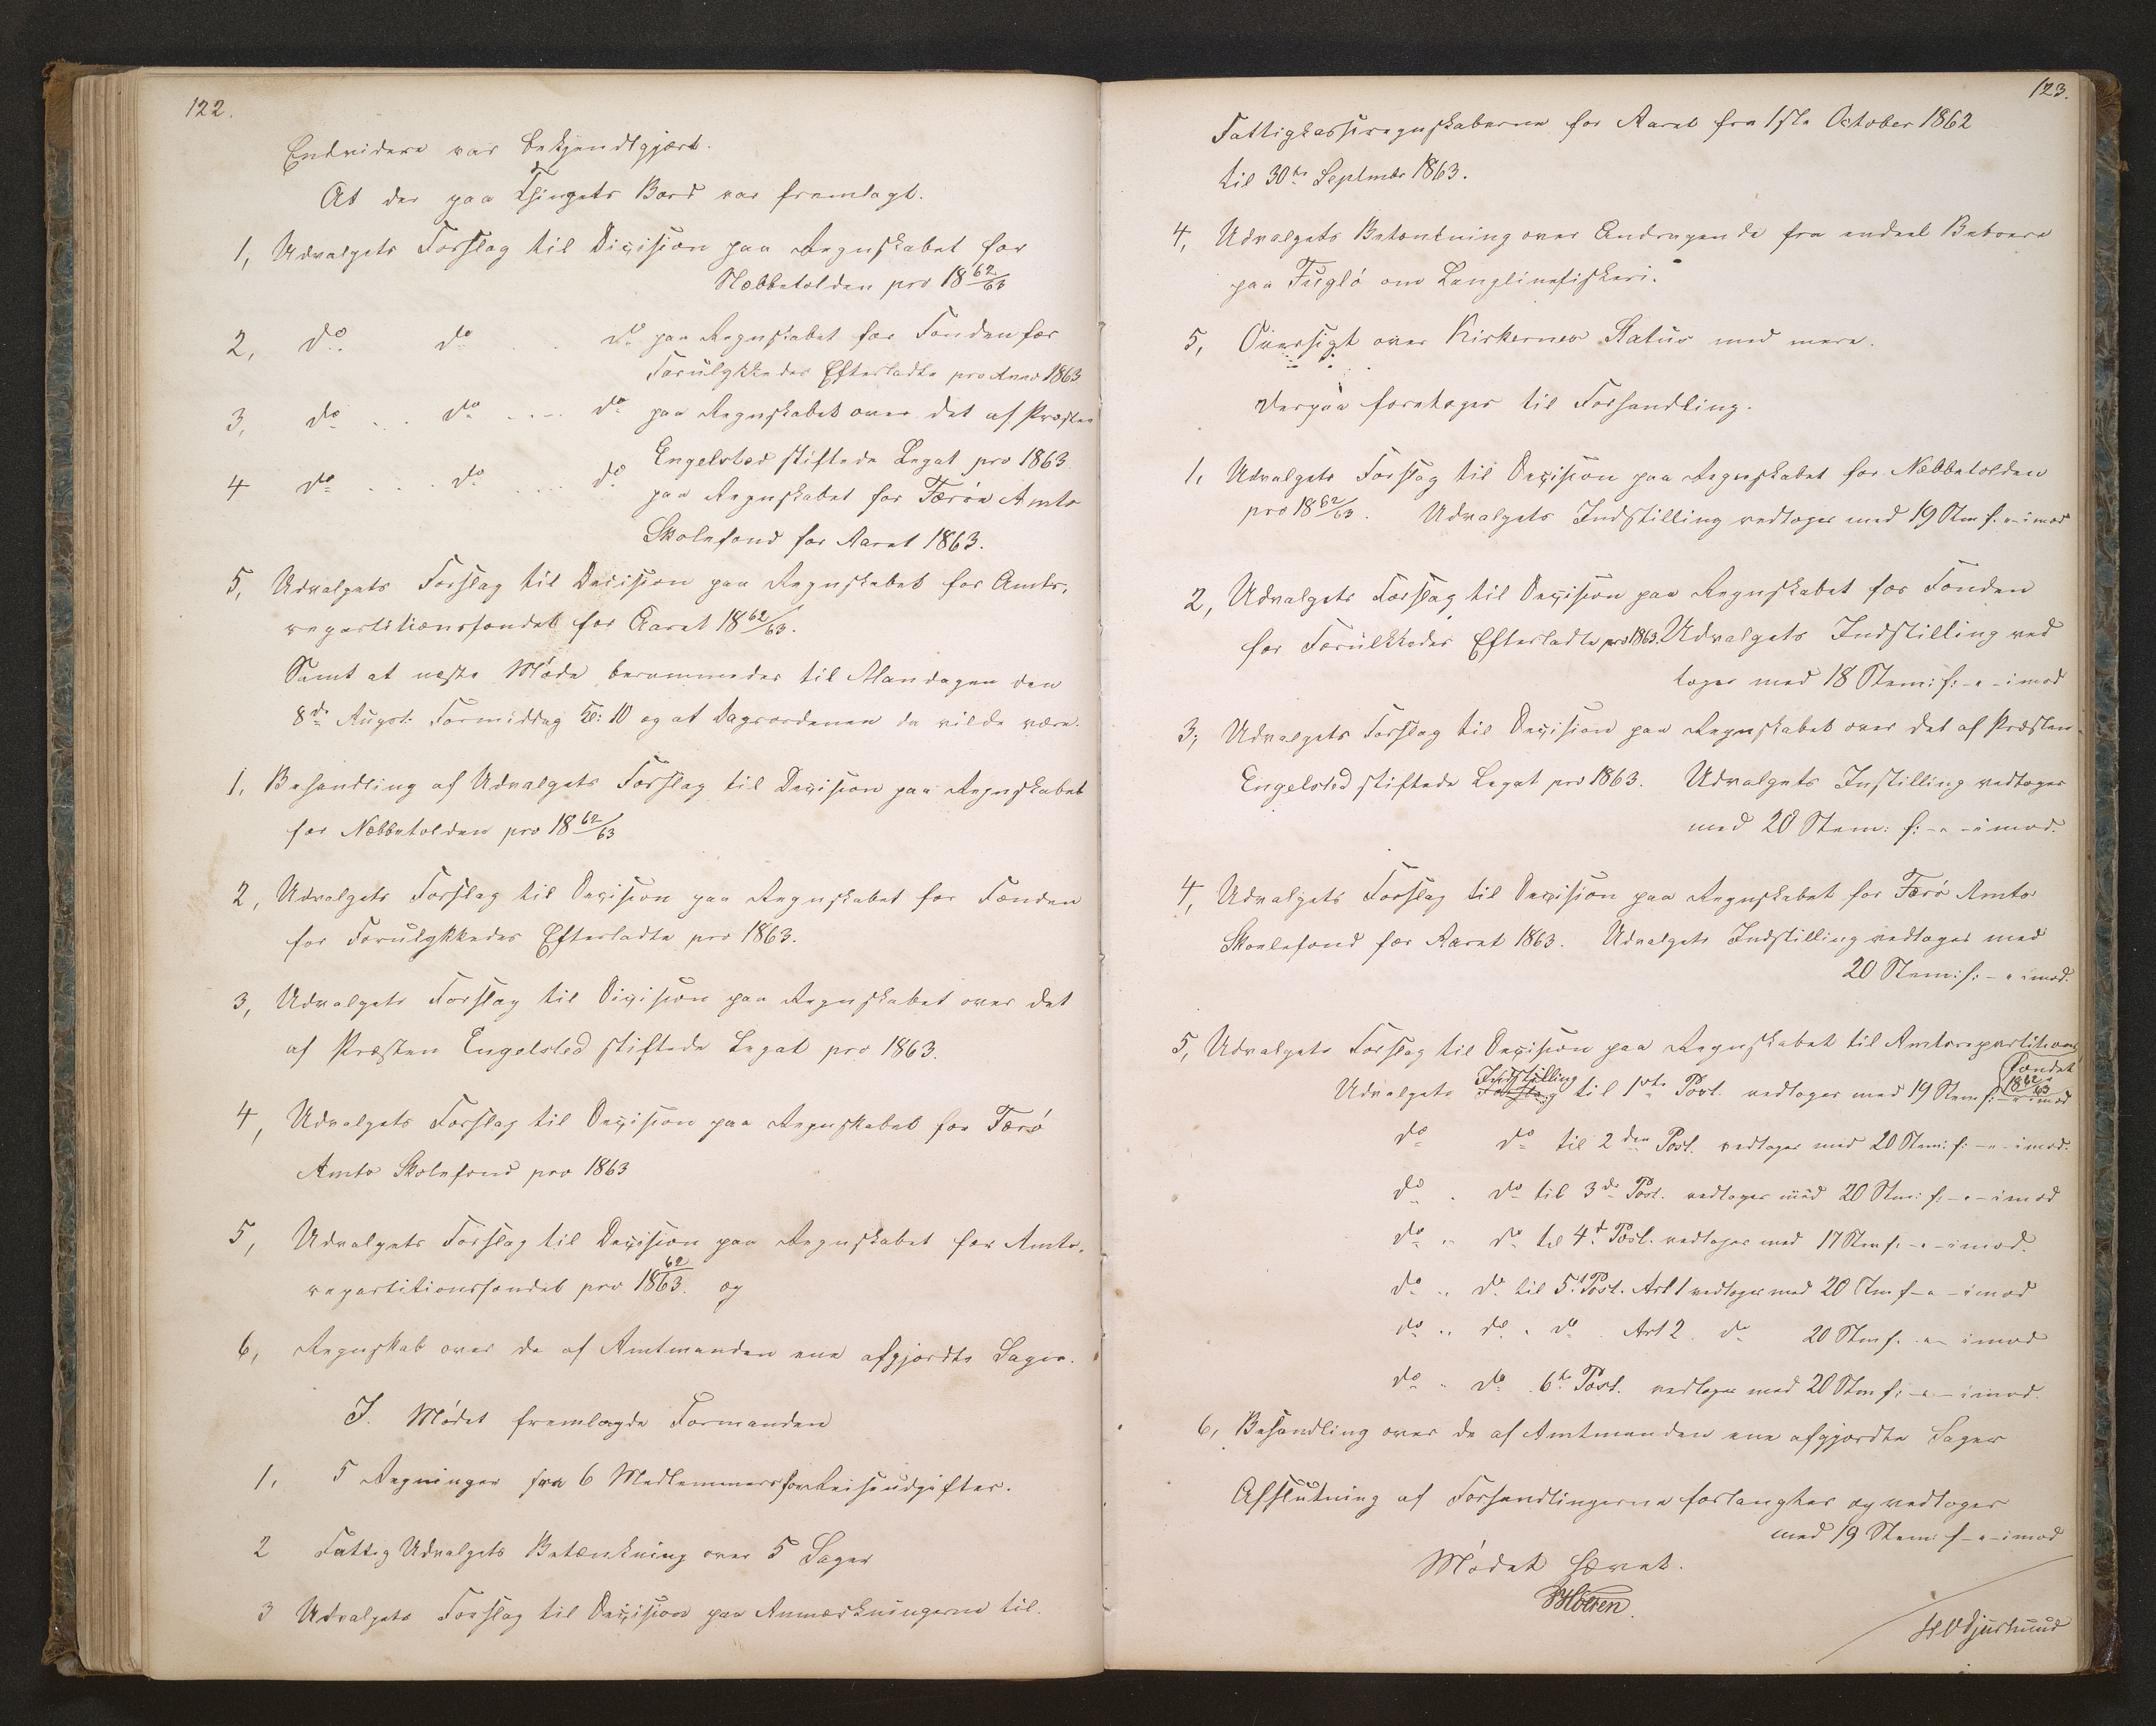 122.
Endvidere var bekjendtgjort.
At der paa Thingets Bord var fremlagt.
1, Udvalgets Forslag til Dicision paa Regnskabet for
Næbbetolden pro 18 62/63
2, do. do . . do paa Regnskabet for Fonden for
Forulykkedes Efterladte pro Anno 1863
3, do . . . do . . . . do paa Regnskabet over det af Præsten
Engelsted stiftede Legat pro 1863.
4 do . . . do . . . . do
paa Regnskabet for Færøe Amts
Skolefond for Aaret 1863.
5, Udvalgets Forslag til Decision paa Regnskabet for Amts-
repartitionsfondet for Aaret 18 62/63.
Samt at næste Møde berammedes til Mandagen den
8de August Formiddag Kl: 10 og at Dagsordenen da vilde være.
1, Behandling af Udvalgets Forslag til Decision paa Regnskabet
for Næbbetolden pro 18 62/63
2, Udvalgets Forslag til Decision paa Regnskabet for Fonden
for Forulykkedes Efterladte pro 1863.
3, Udvalgets Forslag til Dicision paa Regnskabet over det
af Præsten Engelsted stiftede Legat pro 1863.
4, Udvalgets Forslag til Decision paa Regnskabet for Færø
Amts Skolefond pro 1863
5, Udvalgets Forslag til Decision paa Regnskabet for Amts-
repartitionsfondet pro 18 62/63. og
6, Regnskab over de af Amtmanden ene afgjordte Sager.
I. Mødet fremlagde Formanden
1, 5 Regninger fra 6 Medlemmers for Reiseudgifter.
2 Fattig Udvalgets Betænkning over 5 Sager
3 Udvalgets Forslag til Decision paa Anmærkningerne til.
123.
Fattigkasseregnskaberne for Aaret fra 1ste October 1862
til 30te Septmbr 1863.
4, Udvalgets Betænkning over Andragende fra endeel Beboere
paa Fuglø om Langlinefiskeri.
5, Oversigt over Kirkernes Status med mere.
Derpaa foretoges til Forhandling.
1, Udvalgets Forslag til Decision paa Regnskabet for Næbbetolden
pro 18 62/63. Udvalgets Indstilling vedtoges med 19 Stm f. "- imod
2, Udvalgets Forslag til Decision paa Regnskabet for Fonden
for Forulkkedes Efterladte pro 1863. Udvalgets Indstilling ved
toges med 18 Stem: f: - " - imod
3, Udvalgets Forslag til Decision paa Regnskabet over det af Præsten
Engelsted stiftede Legat pro 1863. Udvalgets Instilling vedtoges
med 20 Stem: f: - " - imod.
4, Udvalgets Forslag til Decision paa Regnskabet for Færø Amts
Skoelefond for Aaret 1863. Udvalgets Indstilling vedtoges med
20 Stem: f: - " imod.
5, Udvalgets Forslag til Decision paa Regnskabet til Amtsrepartitions
fondet
18 62/63
Udvalgets Forslag Indstilling til 1ste Post. vedtoges med 19 Stem f: - " imod
do do til 2den Post. vedtoges med 20 Stem: f: - " - imod.
do . do til 3de Post. vedtoges med 20 Stm: f: - " - imod
do .. do til 4d Post. vedtoges med 17 Stm f: - " - imod.
do .. do til 5t Post. Art 1 vedtoges med 20 Stm f - " - imod
do .. do . do . Art 2. do 20 Stm f. - " - imod
do .. do . 6te Post. vedtoges med 20 Stm f: - " - imod.
6, Behandling over de af Amtmanden ene afgjordte Sager
Afslutning af Forhandlingerne forlangtes og vedtoges
med 19 Stem: f - " - imod
Mødet hævet.
HO Djurhuus